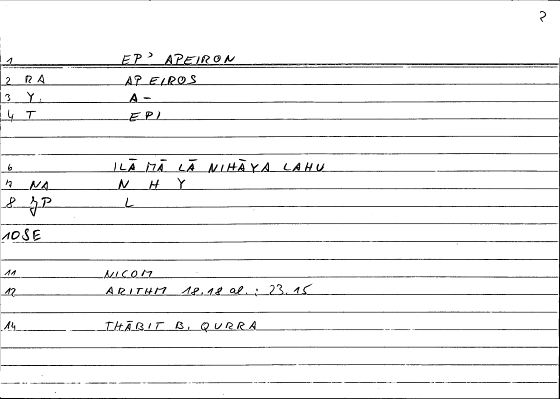 2
1 EP' APEIRON
2 RA APEIROS
3 Y. A-
4 T EPI
6 ILĀ MĀ LĀ NIHĀYA LAHU
7 NA N H Y
8 JP L
10 SE
11 NICOM
12 ARITHM 18.18 al.: 23.15
14 THĀBIT B. QURRA